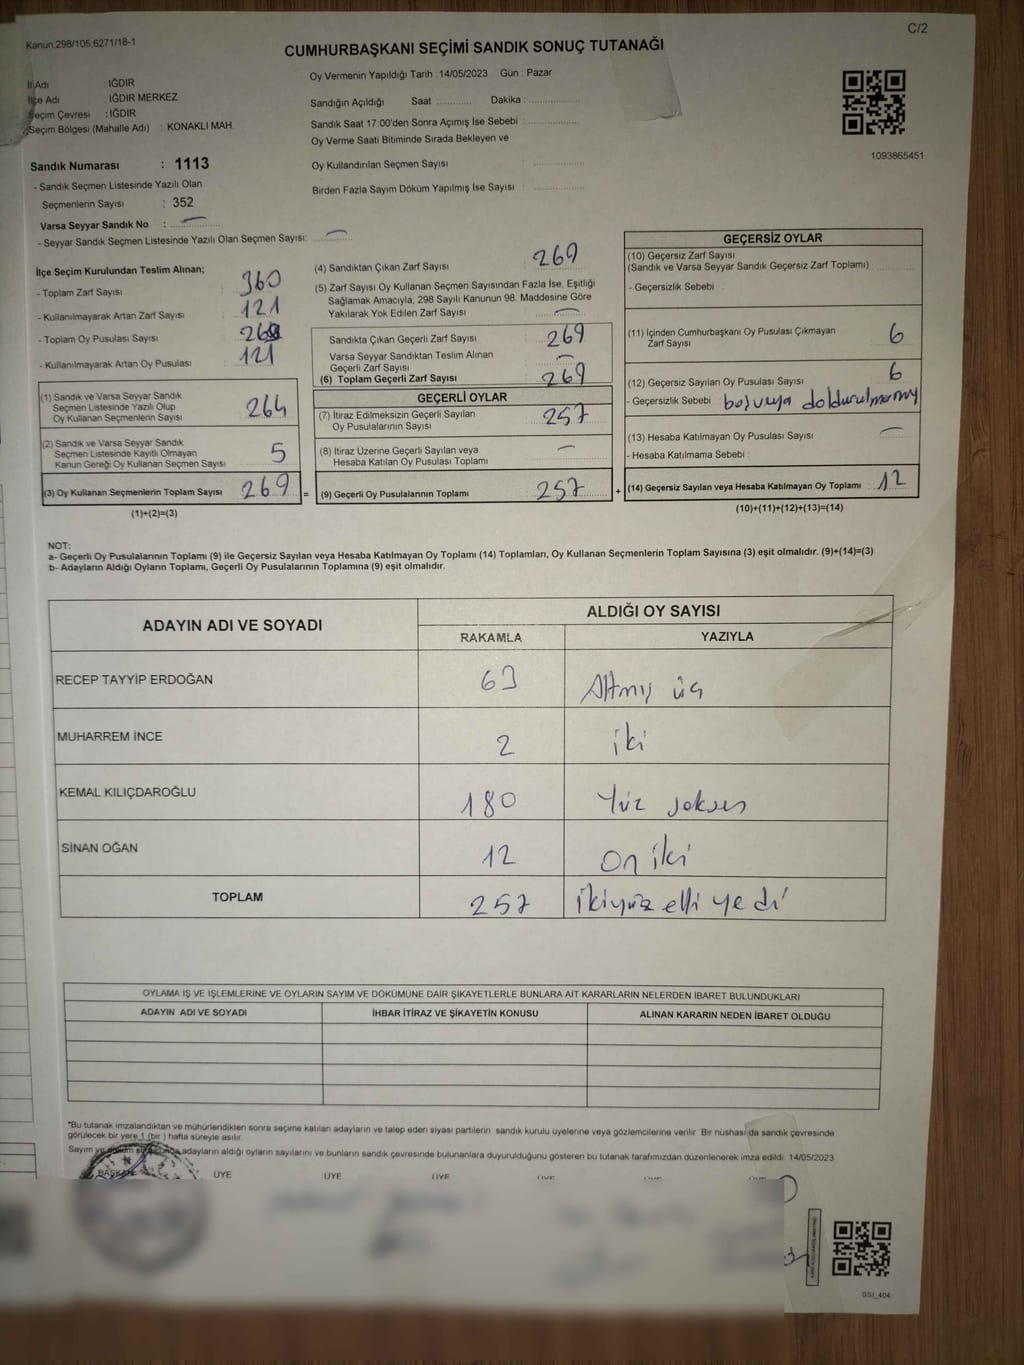 Kanun.298/105,6271/18-1
C/2
CUMHURBAŞKANI SEÇİMİ SANDIK SONUÇ TUTANAĞI
İl Adı : IĞDIR
İlçe Adı : IĞDIR MERKEZ
Seçim Çevresi : IĞDIR
Seçim Bölgesi (Mahalle Adı) : KONAKLI MAH.
Sandık Numarası : 1113
- Sandık Seçmen Listesinde Yazılı Olan
Seçmenlerin Sayısı : 352
Varsa Seyyar Sandık No :
- Seyyar Sandık Seçmen Listesinde Yazılı Olan Seçmen Sayısı:
Oy Vermenin Yapıldığı Tarih : 14/05/2023 Gün : Pazar
Sandığın Açıldığı Saat : Dakika :
Sandık Saat 17:00'den Sonra Açımış İse Sebebi :
Oy Verme Saati Bitiminde Sırada Bekleyen ve
Oy Kullandırılan Seçmen Sayısı :
Birden Fazla Sayım Döküm Yapılmış İse Sayısı :
1093865451
İlçe Seçim Kurulundan Teslim Alınan;
- Toplam Zarf Sayısı : 360
- Kullanılmayarak Artan Zarf Sayısı : 121
- Toplam Oy Pusulası Sayısı :
- Kullanılmayarak Artan Oy Pusulası : 121
(1) Sandık ve Varsa Seyyar Sandık
Seçmen Listesinde Yazılı Olup
Oy Kullanan Seçmenlerin Sayısı : 264
(2) Sandık ve Varsa Seyyar Sandık
Seçmen Listesinde Kayıtlı Olmayan
Kanun Gereği Oy Kullanan Seçmen Sayısı : 5
(3) Oy Kullanan Seçmenlerin Toplam Sayısı : 269 =
(1)+(2)=(3)
(4) Sandıktan Çıkan Zarf Sayısı : 269
(5) Zarf Sayısı Oy Kullanan Seçmen Sayısından Fazla İse, Eşitliği
Sağlamak Amacıyla, 298 Sayılı Kanunun 98. Maddesine Göre
Yakılarak Yok Edilen Zarf Sayısı :
Sandıkta Çıkan Geçerli Zarf Sayısı : 269
Varsa Seyyar Sandıktan Teslim Alınan
Geçerli Zarf Sayısı :
(6) Toplam Geçerli Zarf Sayısı : 269
GEÇERLİ OYLAR
(7) İtiraz Edilmeksizin Geçerli Sayılan
Oy Pusulalarının Sayısı : 257
(8) İtiraz Üzerine Geçerli Sayılan veya
Hesaba Katılan Oy Pusulası Toplamı :
(9) Geçerli Oy Pusulalarının Toplamı : 257 +
GEÇERSİZ OYLAR
(10) Geçersiz Zarf Sayısı
(Sandık ve Varsa Seyyar Sandık Geçersiz Zarf Toplamı) :
- Geçersizlik Sebebi :
(11) İçinden Cumhurbaşkanı Oy Pusulası Çıkmayan
Zarf Sayısı : 6
(12) Geçersiz Sayılan Oy Pusulası Sayısı : 6
- Geçersizlik Sebebi : boş veya doldurulmamış
(13) Hesaba Katılmayan Oy Pusulası Sayısı :
- Hesaba Katılmama Sebebi :
(14) Geçersiz Sayılan veya Hesaba Katılmayan Oy Toplamı : 12
(10)+(11)+(12)+(13)=(14)
NOT:
a- Geçerli Oy Pusulalarının Toplamı (9) ile Geçersiz Sayılan veya Hesaba Katılmayan Oy Toplamı (14) Toplamları, Oy Kullanan Seçmenlerin Toplam Sayısına (3) eşit olmalıdır. (9)+(14)=(3)
b- Adayların Aldığı Oyların Toplamı, Geçerli Oy Pusulalarının Toplamına (9) eşit olmalıdır.
ADAYIN ADI VE SOYADI
ALDIĞI OY SAYISI
RAKAMLA YAZIYLA
RECEP TAYYİP ERDOĞAN 63 Altmış üç
MUHARREM İNCE 2 iki
KEMAL KILIÇDAROĞLU 180 Yüz seksen
SİNAN OĞAN 12 on iki
TOPLAM 257 ikiyüz elli yedi
OYLAMA İŞ VE İŞLEMLERİNE VE OYLARIN SAYIM VE DÖKÜMÜNE DAİR ŞİKAYETLERLE BUNLARA AİT KARARLARIN NELERDEN İBARET BULUNDUKLARI
ADAYIN ADI VE SOYADI İHBAR İTİRAZ VE ŞİKAYETİN KONUSU ALINAN KARARIN NEDEN İBARET OLDUĞU
*Bu tutanak imzalandıktan ve mühürlendikten sonra seçime katılan adayların ve talep eden siyasi partilerin sandık kurulu üyelerine veya gözlemcilerine verilir. Bir nüshası da sandık çevresinde
görülecek bir yere 1 (bir) hafta süreyle asılır.
Sayım ve adayların aldığı oyların sayılarını ve bunların sandık çevresinde bulunanlara duyurulduğunu gösteren bu tutanak tarafımızdan düzenlenerek imza edildi. 14/05/2023
BAŞKAN ÜYE ÜYE ÜYE ÜYE
SSI_404